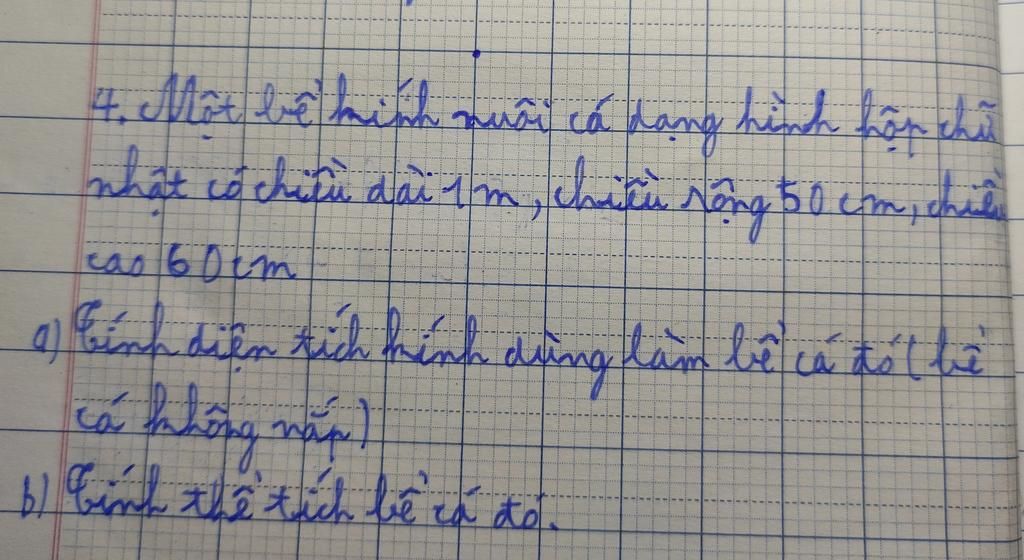 4. Một bể kính nuôi cá dạng hình hộp chữ
nhật có chiều dài 1m, chiều rộng 50 cm, chiều
cao 60 cm
a) Tính diện tích kính dùng làm bể cá đó (bể
cá không nắp)
b) Tính thể tích bể cá đó.